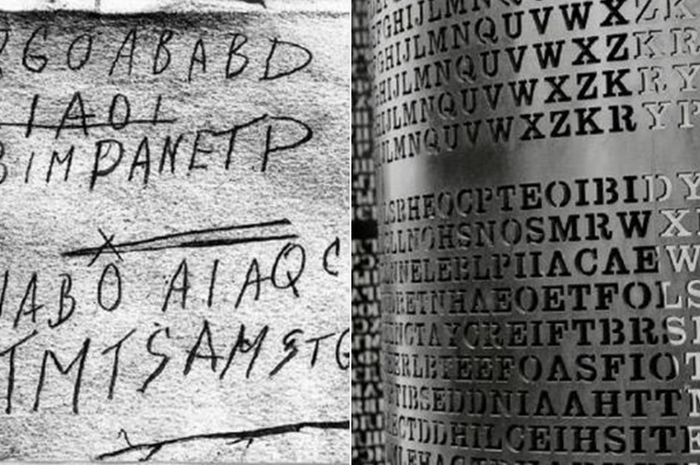 GOABABD
IAOI
BIMPANETP
IABO AIAQC
TMTSAMSTG
GHIJLMNQUVWXZK
HIJLMNQUVWXZKR
IJLMNQUVWXZKRY
JLMNQUVWXZKRYT
LSRHEOCPTEOIBIDY
LLNOHSNOSMRWX
NNELEBLPIIACAEW
DRETNHAEOETFOLS
ENCTAYCREIFTBRS
ERLBTEEFOASFIOT
TIBSEDDNIAAHTTM
ECTDDHILCEIHSITE